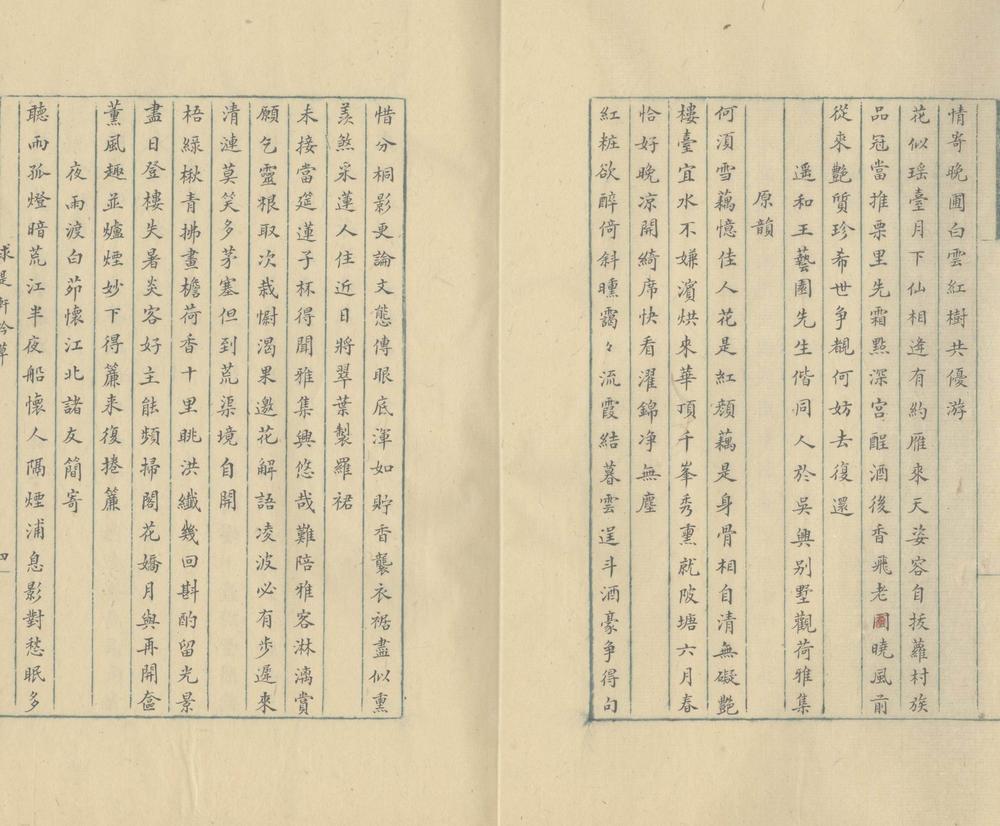 情寄晚圃白雲紅樹共優游
花似瑶臺月下仙相逢有約雁來天姿容自拔蘿村族
品冠當推栗里先霜㸃深宫酲酒後香飛老圃曉風前
從來艷質珍希世争覩何妨去復還
遥和王藝園先生偕同人於吳興别墅觀荷雅集
原韻
何湏雪藕憶佳人花是紅顔藕是身骨相自清無礙艷
樓臺宜水不嫌濱烘來華頂千峯秀熏就陂塘六月春
恰好晚凉開綺席快看濯錦净無塵
紅粧欲醉倚斜曛靄々流霞結暮雲逞斗酒豪争得句
惜分桐影更論文態傳眼底渾如貯香襲衣裾盡似熏
羨煞采蓮人住近日將翠葉製羅裙
未接當筵蓮子杯得聞雅集興悠哉難陪雅客淋漓賞
願乞靈根取次栽㥜渴果邀花解語凌波必有步遲來
清漣莫笑多茅塞但到荒渠境自開
梧緑楸青拂畫檐荷香十里眺洪纖幾回斟酌留光景
盡日登樓失暑炎客好主能頻掃閣花嬌月與再開奩
薰風趣並爐煙妙下得簾来復捲簾
夜雨渡白茆懷江北諸友簡寄
聽雨孤燈暗荒江半夜船懷人隔煙浦息影對愁眠多
求是軒吟草
四